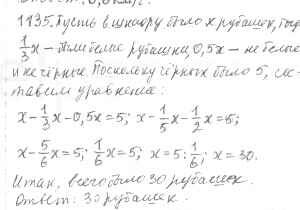 1135. Пусть в шкафу было x рубашек, тогда
1/3 x – были белые рубашки, 0,5x – не белые
и не чёрные. Поскольку чёрных было 5, сос-
тавим уравнение:
x - 1/3 x - 0,5x = 5; x - 1/5 x - 1/2 x = 5;
x - 5/6 x = 5; 1/6 x = 5; x = 5 : 1/6; x = 30.
Итак, всего было 30 рубашек.
Ответ: 30 рубашек.